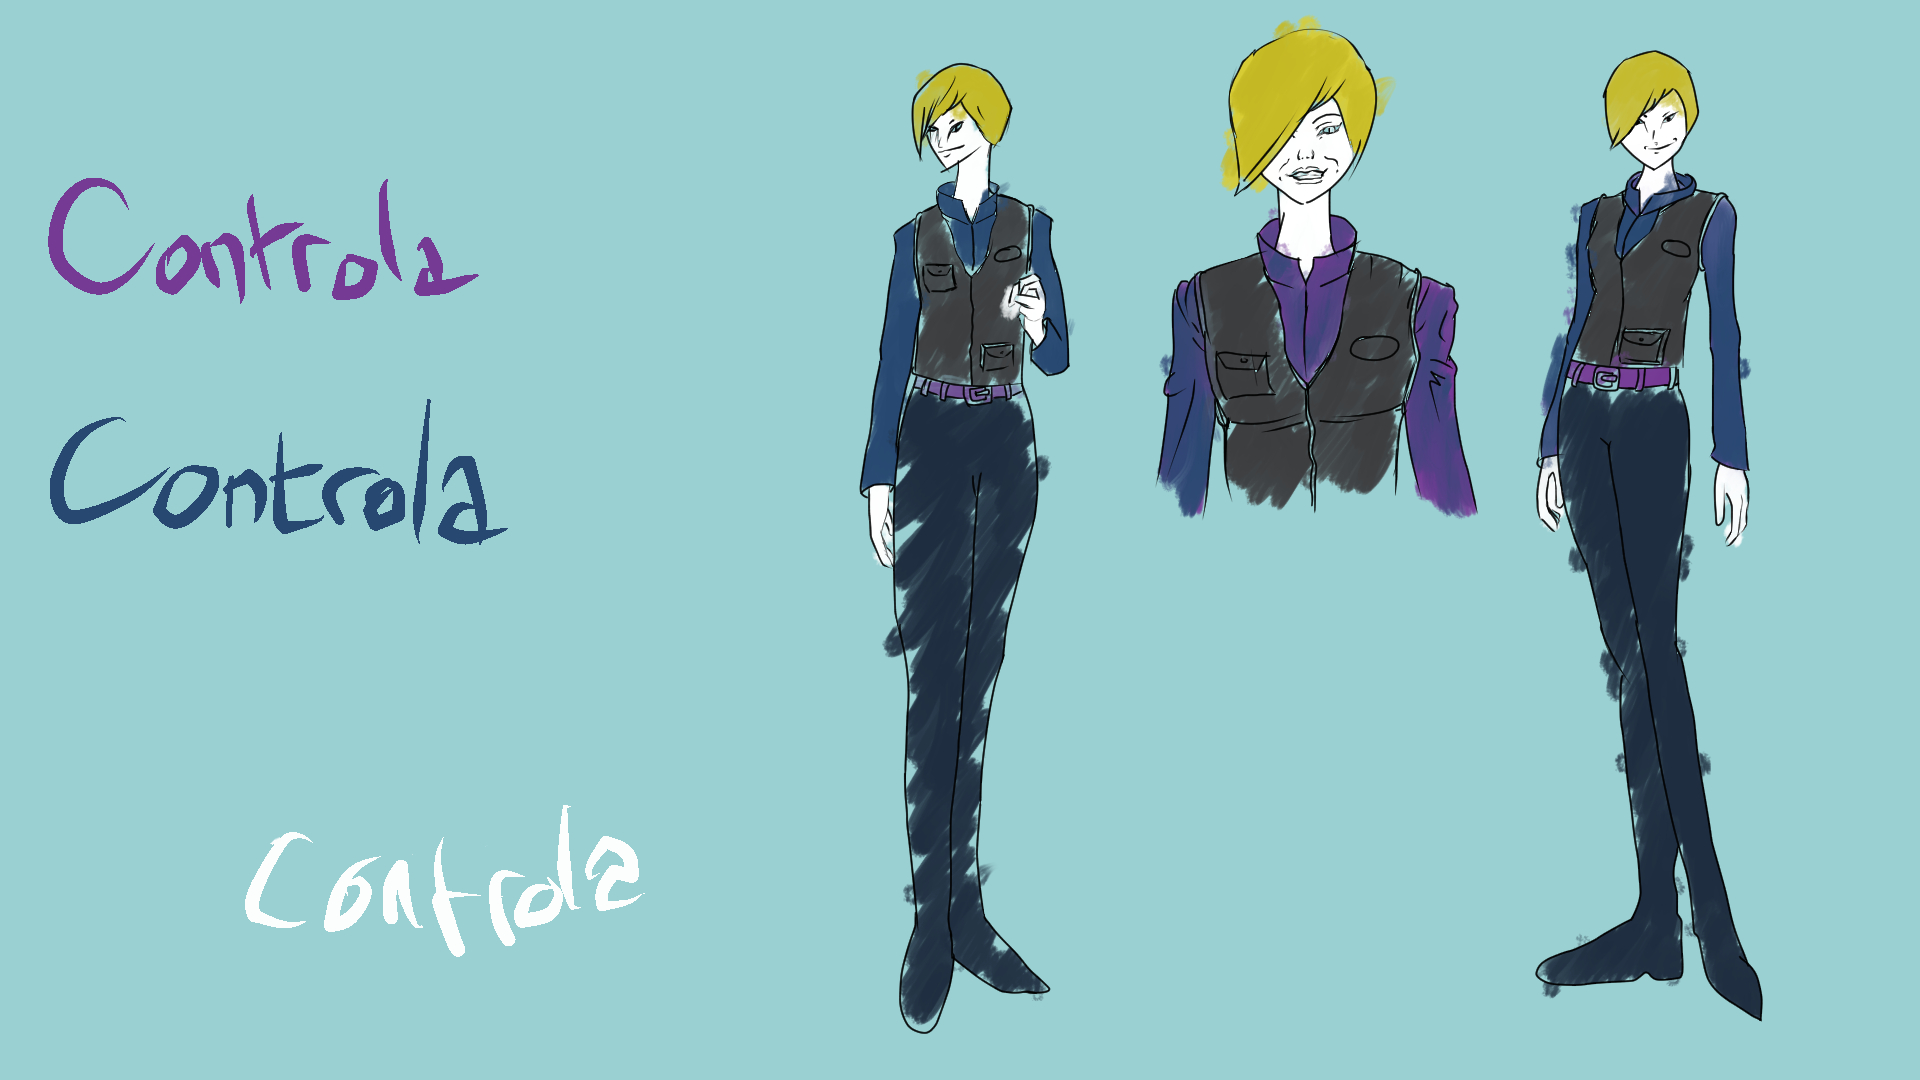 Controla
Controla
Controla